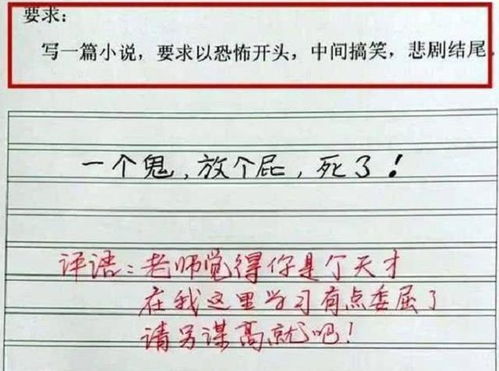 要求:
写一篇小说，要求以恐怖开头，中间搞笑，悲剧结尾，
一个鬼，放个屁，死了！
评语：老师觉得你是个天才
在我这里学习有点委屈了
请另谋高就吧！